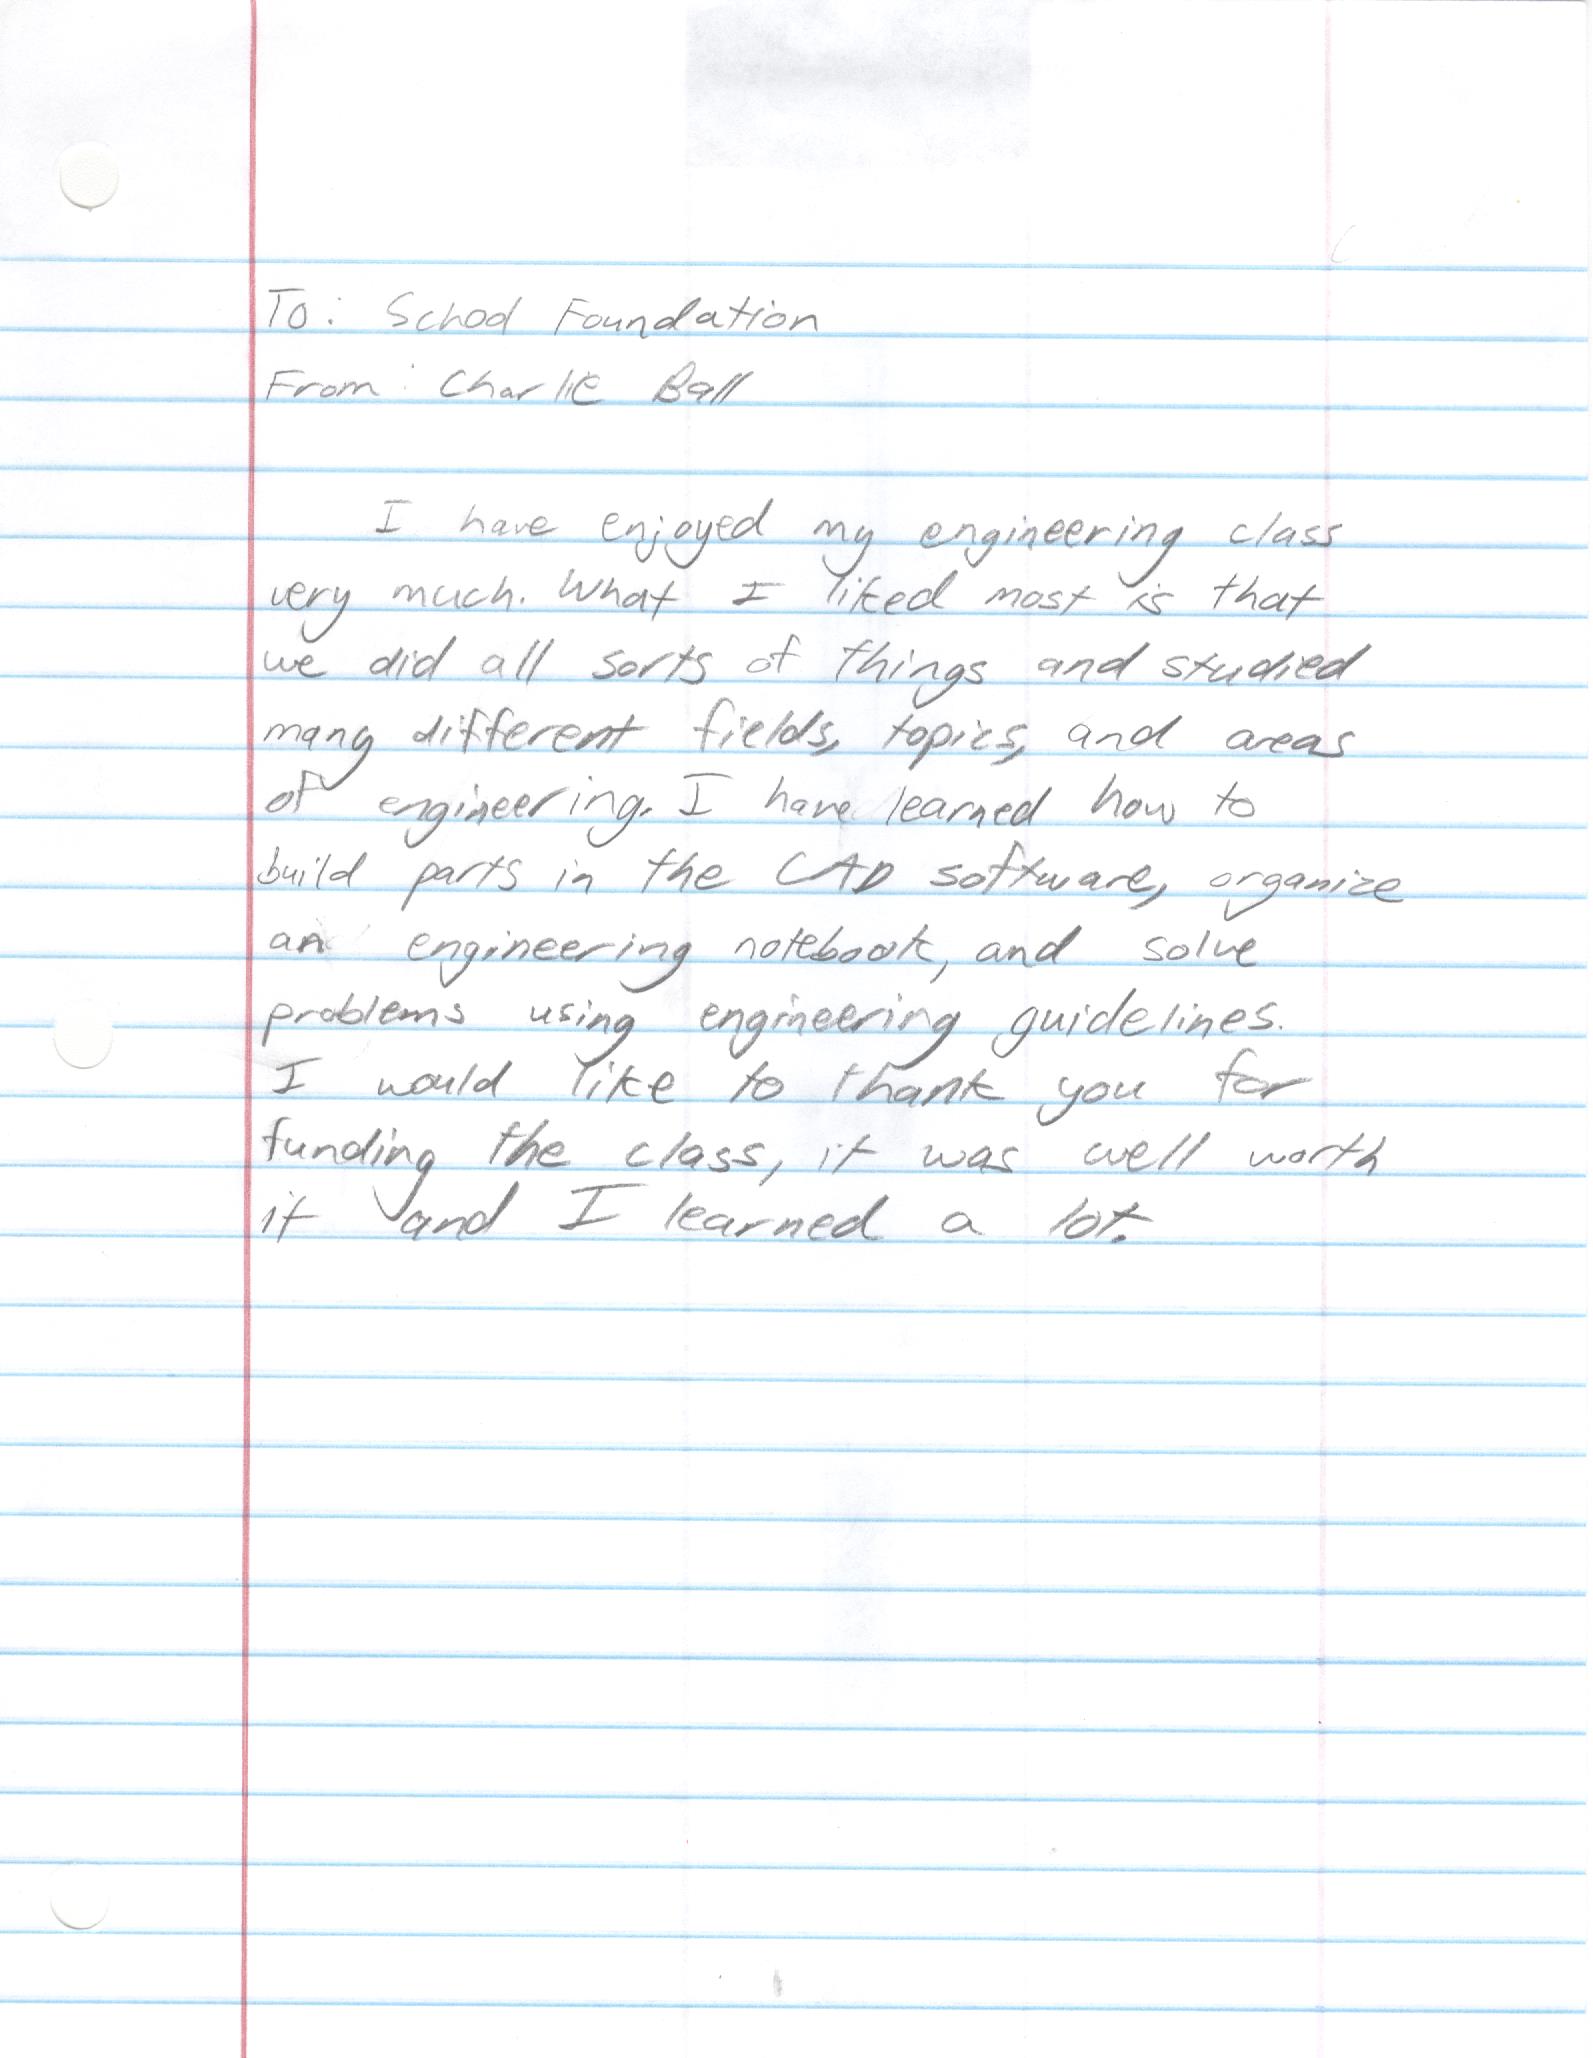 To: School Foundation
From: Charlie Ball
I have enjoyed my engineering class
very much. What I liked most is that
we did all sorts of things and studied
many different fields, topics, and areas
of engineering. I have learned how to
build parts in the CAD software, organize
an engineering notebook, and solve
problems using engineering guidelines.
I would like to thank you for
funding the class, it was well worth
it and I learned a lot.